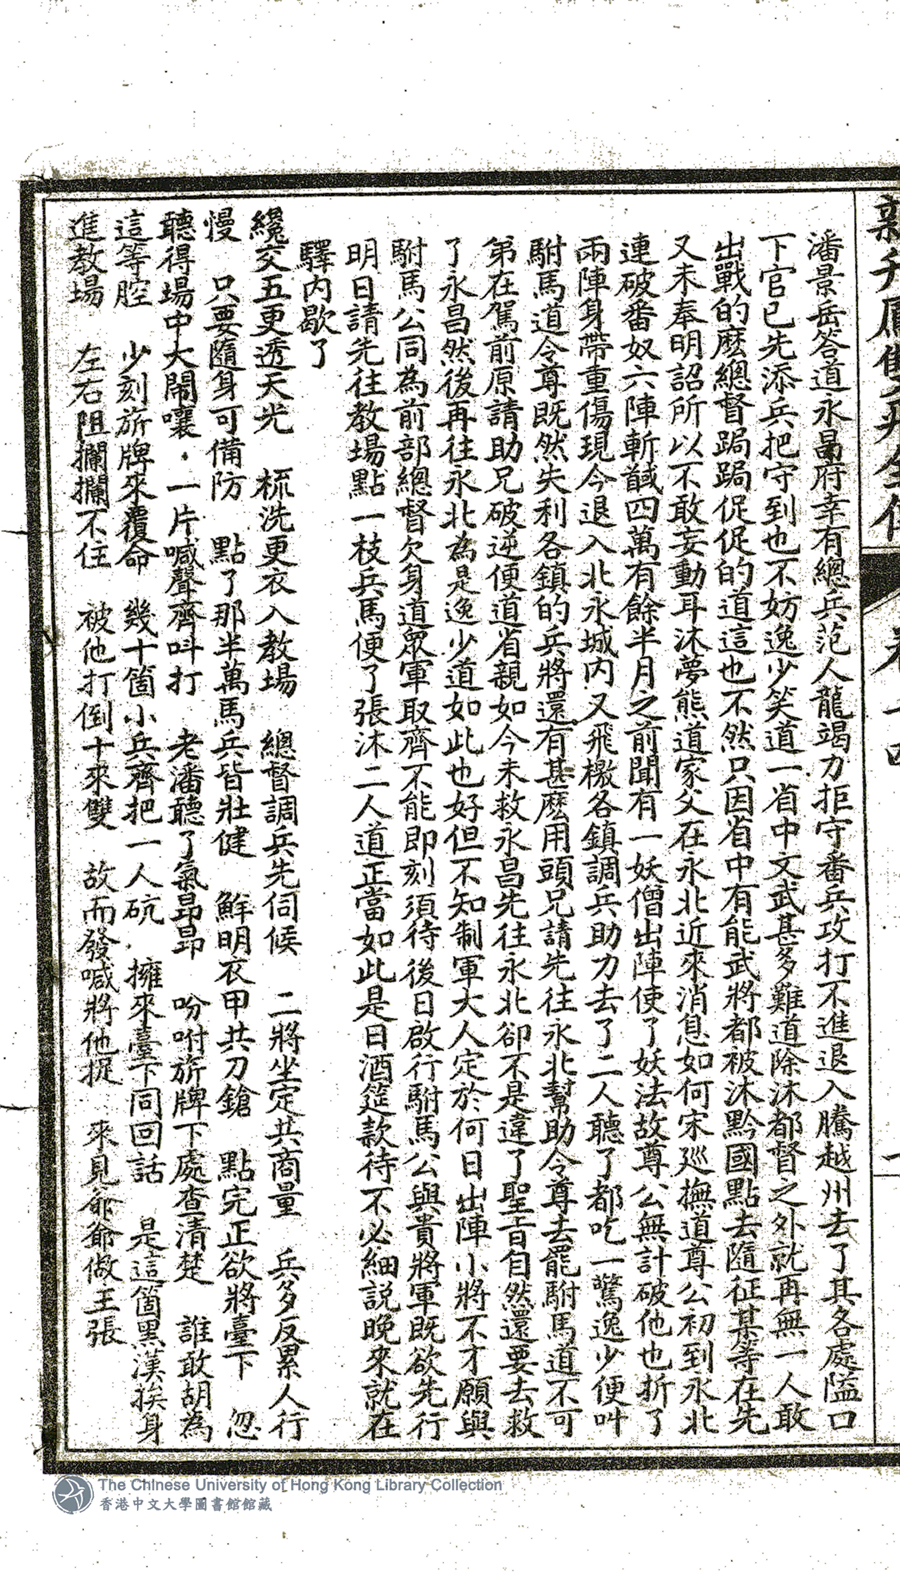 潘景岳答道永昌府幸有總兵范人龍竭力拒守番兵攻打不進退入騰越州去了其各處隘口
下官已先添兵把守到也不妨逸少笑道一省中文武甚多難道除沐都督之外就再無一人敢
出戰的麽總督跼跼促促的道這也不然只因省中有能武將都被沐黔國點去隨征某等在先
又未奉明詔所以不敢妄動耳沐夢熊道家父在永北近來消息如何宋巡撫道尊公初到永北
連破番奴六陣斬馘四萬有餘半月之前聞有一妖僧出陣使了妖法故尊公無計破他也折了
兩陣身帶重傷現今退入北永城内又飛檄各鎮調兵助力去了二人聽了都吃一驚逸少便叫
駙馬道令尊既然失利各鎮的兵將還有甚麽用頭兄請先往永北幫助令尊去罷駙馬道不可
弟在駕前原請助兄破逆便道省親如今未救永昌先往永北卻不是違了聖旨自然還要去救
了永昌然後再往永北為是逸少道如此也好但不知制軍大人定於何日出陣小將不才願與
駙馬公同為前部總督欠身道眾軍取齊不能即刻須待後日啟行駙馬公與貴將軍既欲先行
明日請先往教場點一枝兵馬便了張沐二人道正當如此是日酒筵款待不必細説晚來就在
驛内歇了
纔交五更透天光 梳洗更衣入教場 總督調兵先伺候 二將坐定共商量 兵多反累人行
慢 只要隨身可備防 點了那半萬馬兵皆壯健 鮮明衣甲共刀鎗 點完正欲將臺下 忽
聽得場中大鬧嚷 一片喊聲齊呌打 老潘聽了氣昂昂 吩咐旂牌下處查清楚 誰敢胡為
這等腔 少刻旂牌來覆命 幾十箇小兵齊把一人砊 擁來臺下同回話 是這箇黑漢挨身
進教場 左右阻攔攔不住 被他打倒十來雙 故而發喊將他捉 來見爺爺做主張
卷十四
The Chinese University of Hong Kong Library Collection
香港中文大學圖書館館藏